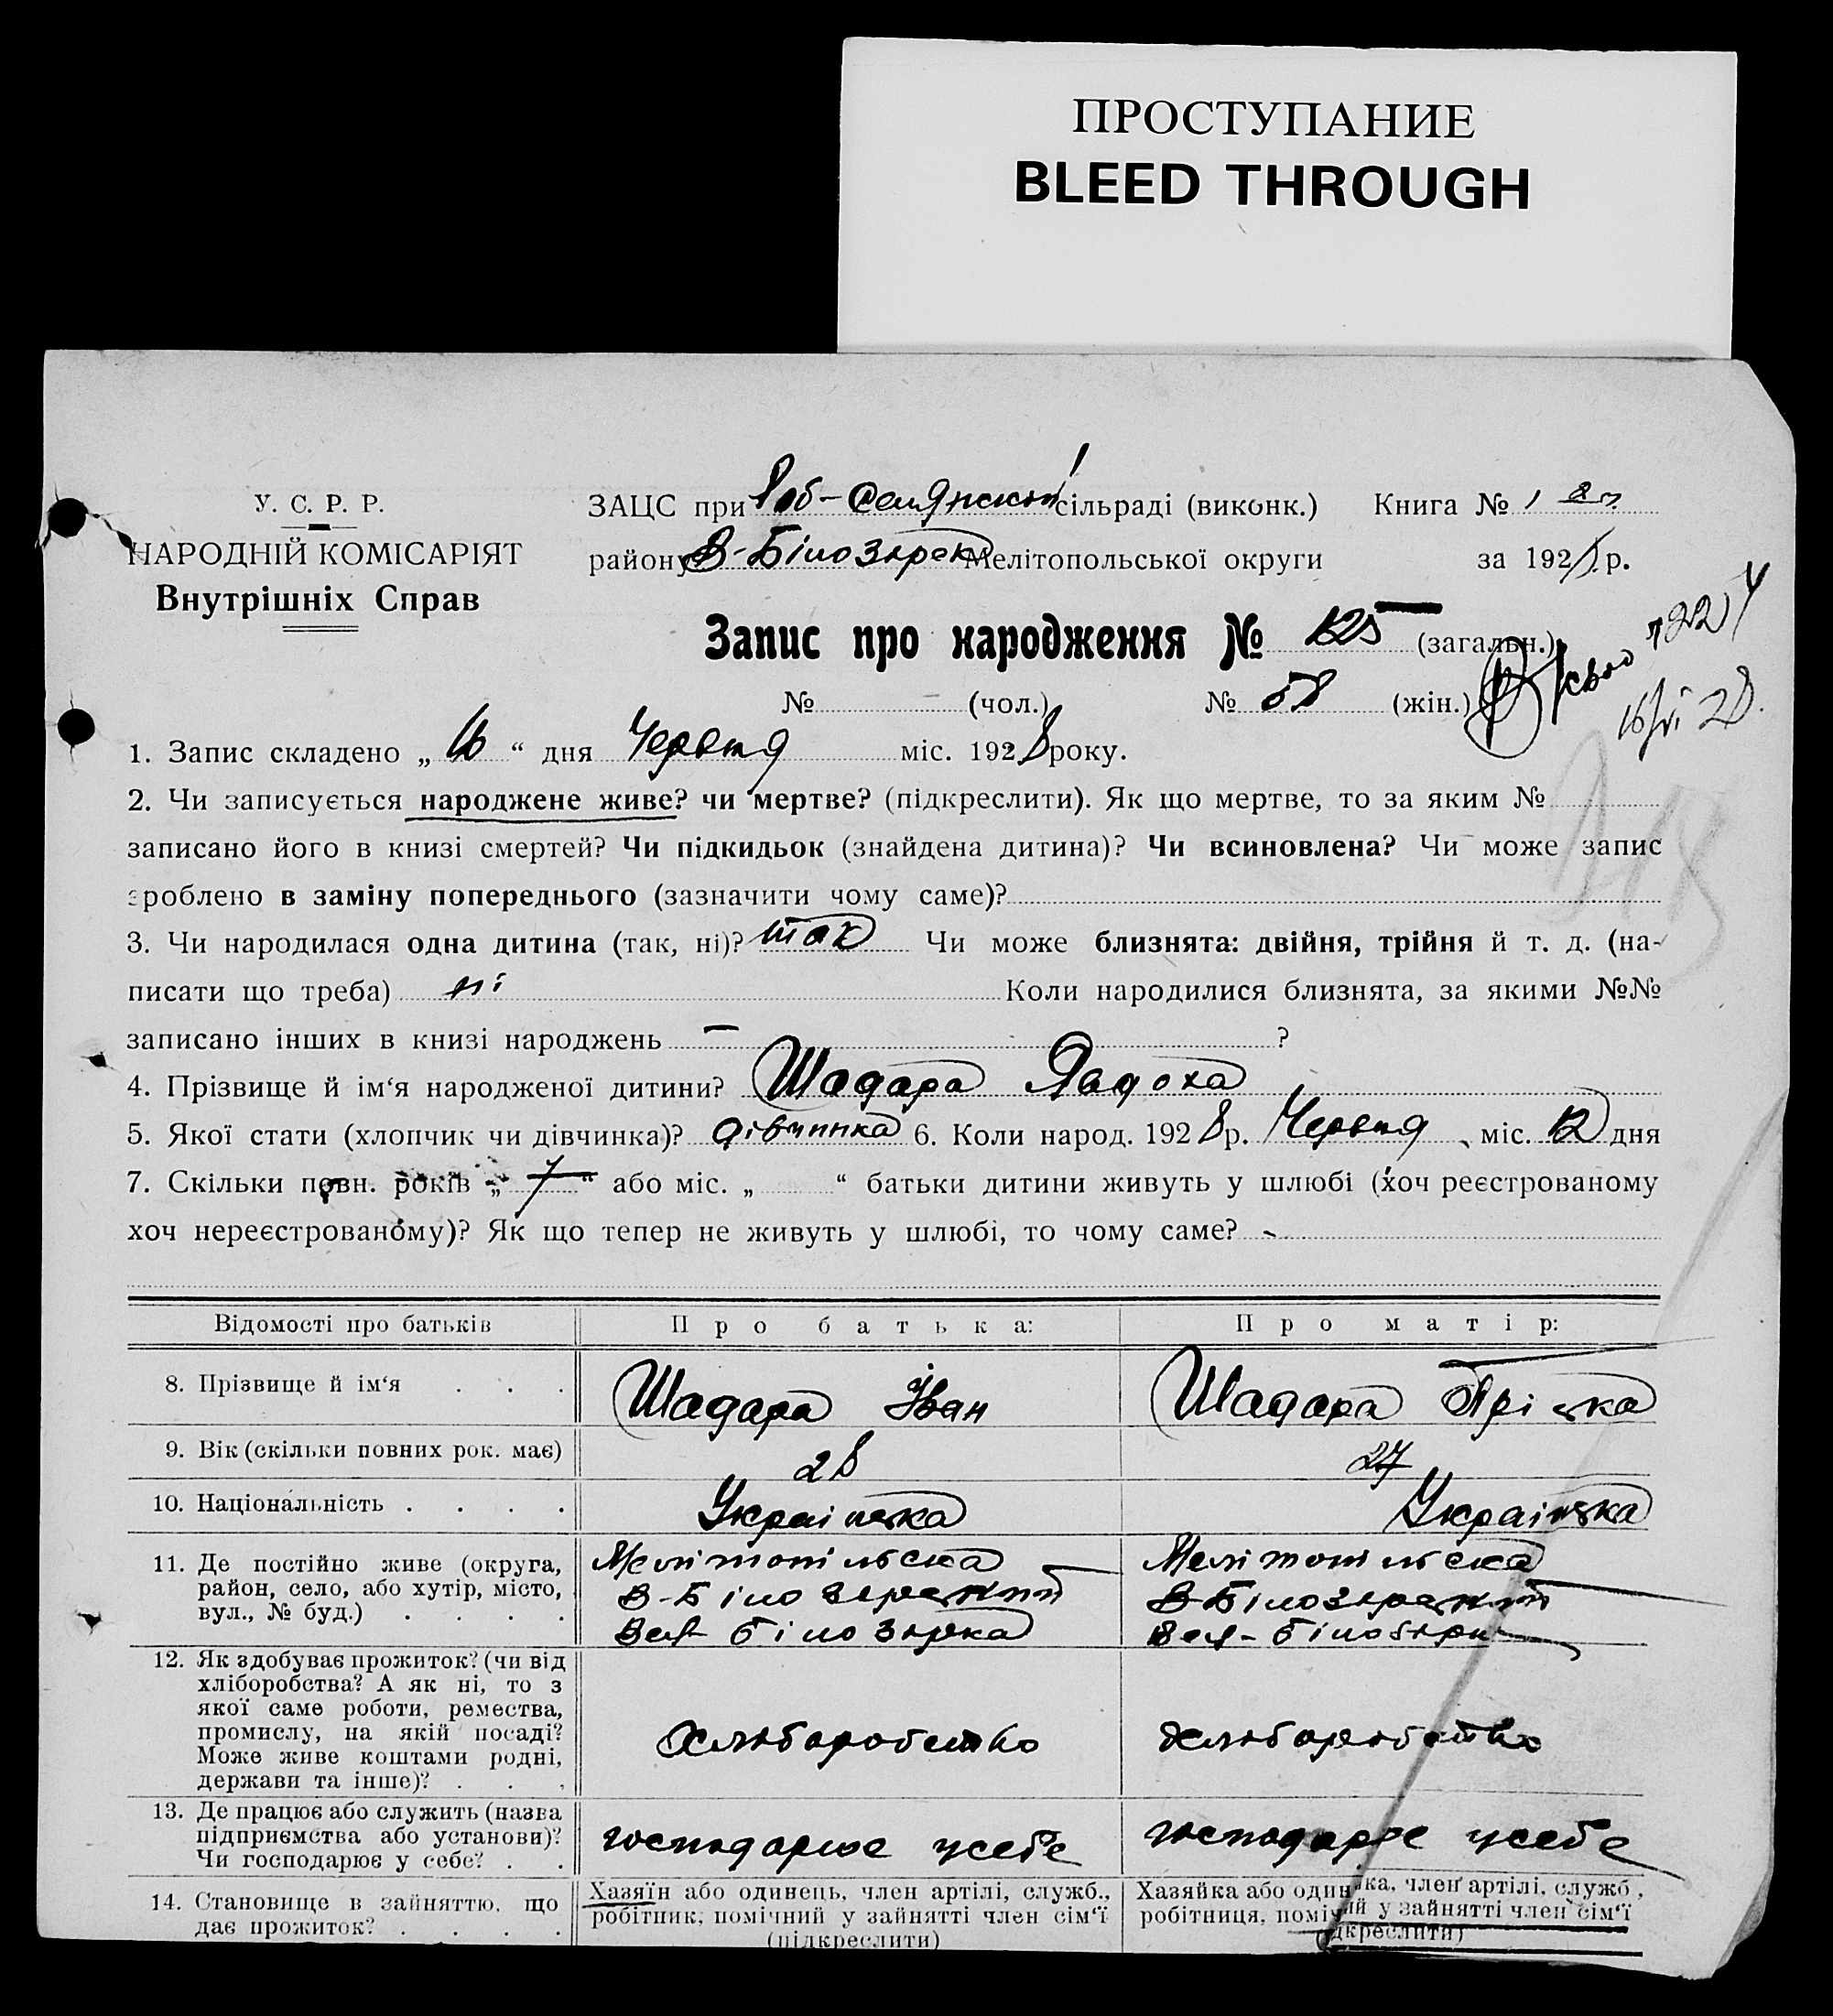 ПРОСТУПАНИЕ
BLEED THROUGH
У. С. Р. Р.
НАРОДНІЙ КОМІСАРІЯТ
Внутрішніх Справ
ЗАЦС при Роб-Селянской сільраді (виконк.) Книга № 1
району В-Білозірск Мелітопольської округи за 1928 р.
Запис про народження № 125 (загальн.)
№ — (чол.) № 58 (жін.)
1. Запис складено „ 16 “ дня Червтя міс. 1928 року.
2. Чи записується народжене живе? чи мертве? (підкреслити). Як що мертве, то за яким №
записано його в книзі смертей? Чи підкидьок (знайдена дитина)? Чи всиновлена? Чи може запис
зроблено в заміну попереднього (зазначити чому саме)?
3. Чи народилася одна дитина (так, ні)? так Чи може близнята: двійня, трійня й т. д. (на-
писати що треба) ні Коли народилися близнята, за якими №№
записано інших в книзі народжень — ?
4. Прізвище й ім‘я народженої дитини? Шадара Явдоха
5. Якої стати (хлопчик чи дівчинка)? дівчинка 6. Коли народ. 1928 р. Червтя міс. 12 дня
7. Скільки повн. років „ 7 “ або міс. „ “ батьки дитини живуть у шлюбі (хоч реєстрованому
хоч нереєстрованому)? Як що тепер не живуть у шлюбі, то чому саме? -
Відомості про батьків Про батька: Про матір:
8. Прізвище й ім‘я . . . Шадара Іван Шадара Пріська
9. Вік (скільки повних рок. має) 28 27
10. Національність . . . . Українська Українська
11. Де постійно живе (округа, Мелітопільска Мелітопільска
район, село, або хутір, місто, В-Білозерский В-Білозерский
вул., № буд.) . . . . Вел-Білозірка Вел-Білозірк
12. Як здобуває прожиток? (чи від
хліборобства? А як ні, то з
якої саме роботи, ремества,
промислу, на якій посаді? Хлюборобство Хлюборобство
Може живе коштами родні,
держави та інше)? . . .
13. Де працює або служить (назва
підприємства або установи)? господарює усебе господарює усебе
Чи господарює у себе? . .
14. Становище в зайняттю, що Хазяїн або одинець, член артілі, служб., Хазяйка або одиначка, член артілі, служб.,
дає прожиток? . . . . робітник, помічний у зайнятті член сім‘ї робітниця, помічний у зайнятті член сім‘ї
(підкреслити) (підкреслити)